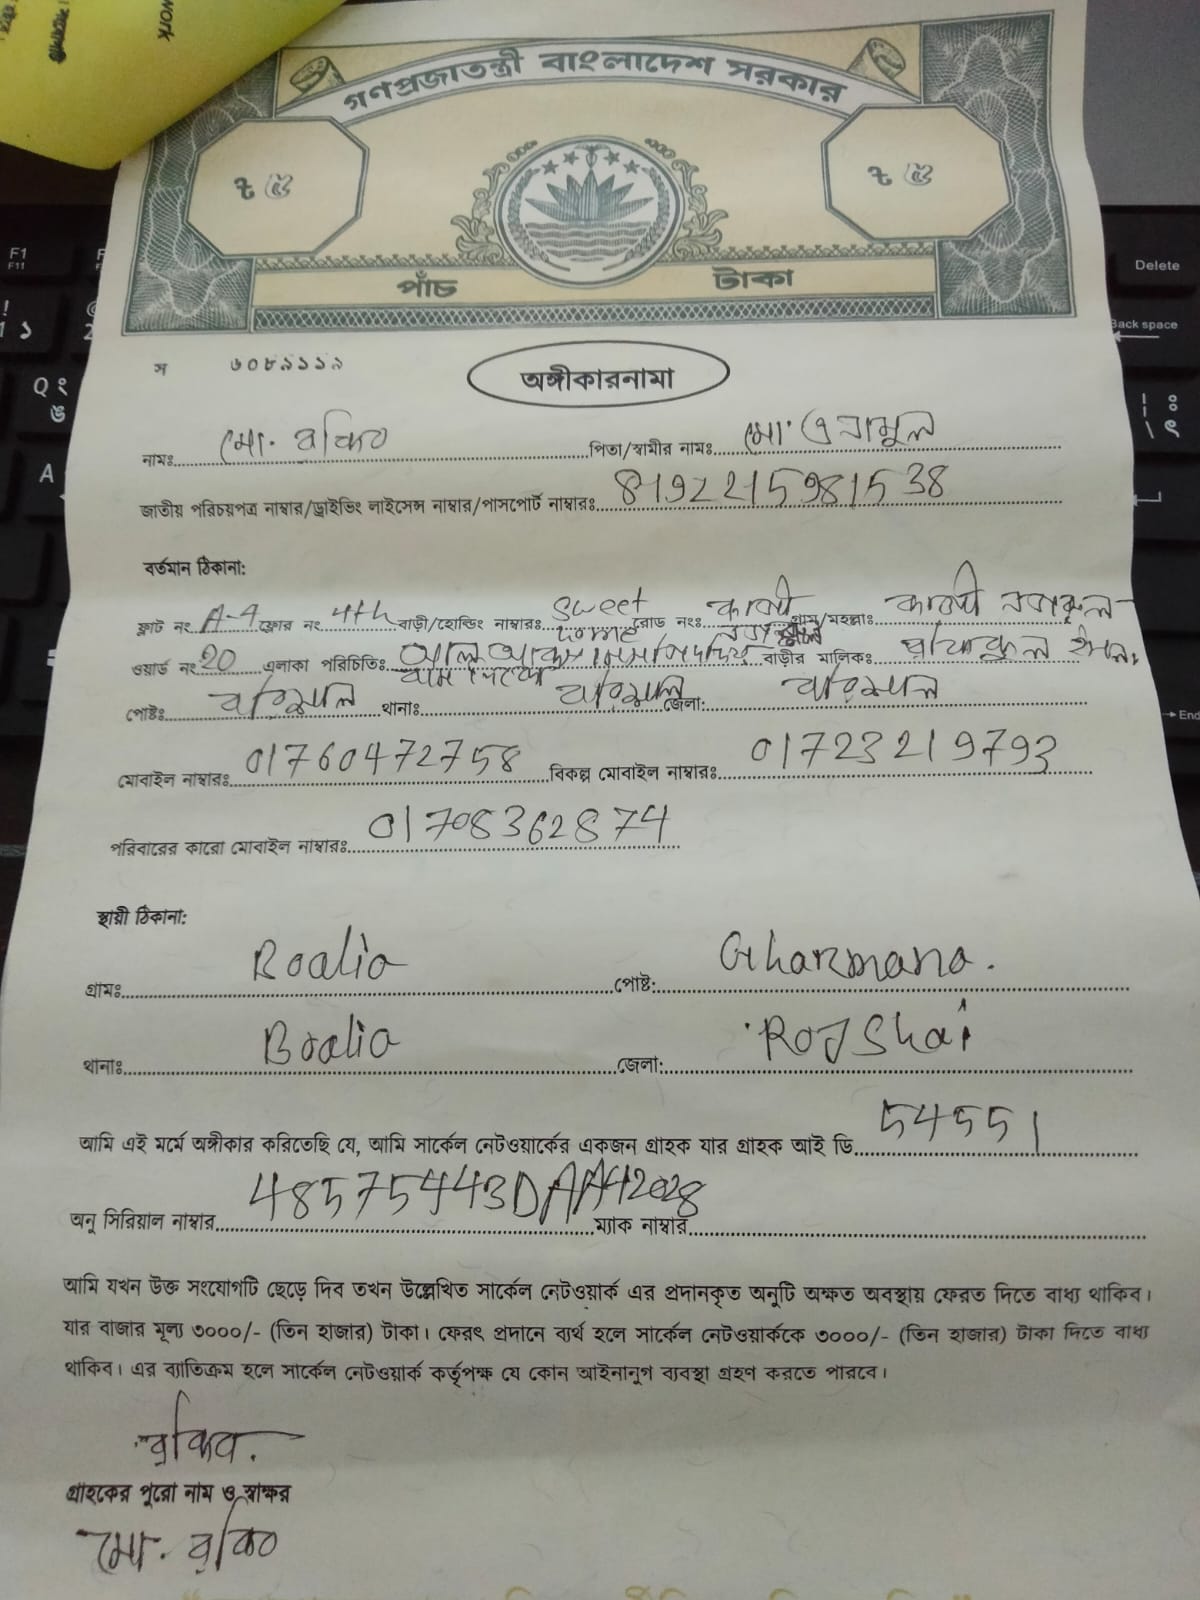 work
গণপ্রজাতন্ত্রী বাংলাদেশ সরকার
৳ ৫ ৳ ৫
পাঁচ টাকা
স ৬০৮৯১১৯
অঙ্গীকারনামা
নামঃ মো. রকিব পিতা/স্বামীর নামঃ মো. এনামুল
জাতীয় পরিচয়পত্র নাম্বার/ড্রাইভিং লাইসেন্স নাম্বার/পাসপোর্ট নাম্বারঃ 8192215981538
বর্তমান ঠিকানা:
ফ্লাট নং A-4 ফ্লোর নং 4th বাড়ী/হোল্ডিং নাম্বারঃ sweet home রোড নংঃ গ্রাম/মহল্লাঃ
ওয়ার্ড নং 20 এলাকা পরিচিতিঃ বাড়ীর মালিকঃ
পোষ্টঃ বরিশাল থানাঃ বরিশাল জেলা: বরিশাল
মোবাইল নাম্বারঃ 01760472758 বিকল্প মোবাইল নাম্বারঃ 01723219793
পরিবারের কারো মোবাইল নাম্বারঃ 01708362874
স্থায়ী ঠিকানা:
গ্রামঃ Boalia পোষ্ট: Gharmana.
থানাঃ Boalia জেলা: Rojshai
আমি এই মর্মে অঙ্গীকার করিতেছি যে, আমি সার্কেল নেটওয়ার্কের একজন গ্রাহক যার গ্রাহক আই ডি 54551
অনু সিরিয়াল নাম্বার 48575443DAA42028 ম্যাক নাম্বার
আমি যখন উক্ত সংযোগটি ছেড়ে দিব তখন উল্লেখিত সার্কেল নেটওয়ার্ক এর প্রদানকৃত অনুটি অক্ষত অবস্থায় ফেরত দিতে বাধ্য থাকিব।
যার বাজার মূল্য ৩০০০/- (তিন হাজার) টাকা। ফেরৎ প্রদানে ব্যর্থ হলে সার্কেল নেটওয়ার্ককে ৩০০০/- (তিন হাজার) টাকা দিতে বাধ্য
থাকিব। এর ব্যাতিক্রম হলে সার্কেল নেটওয়ার্ক কর্তৃপক্ষ যে কোন আইনানুগ ব্যবস্থা গ্রহণ করতে পারবে।
রকিব.
গ্রাহকের পুরো নাম ও স্বাক্ষর
মো. রকিব
F1
F11
Q
A
Delete
Back space
End